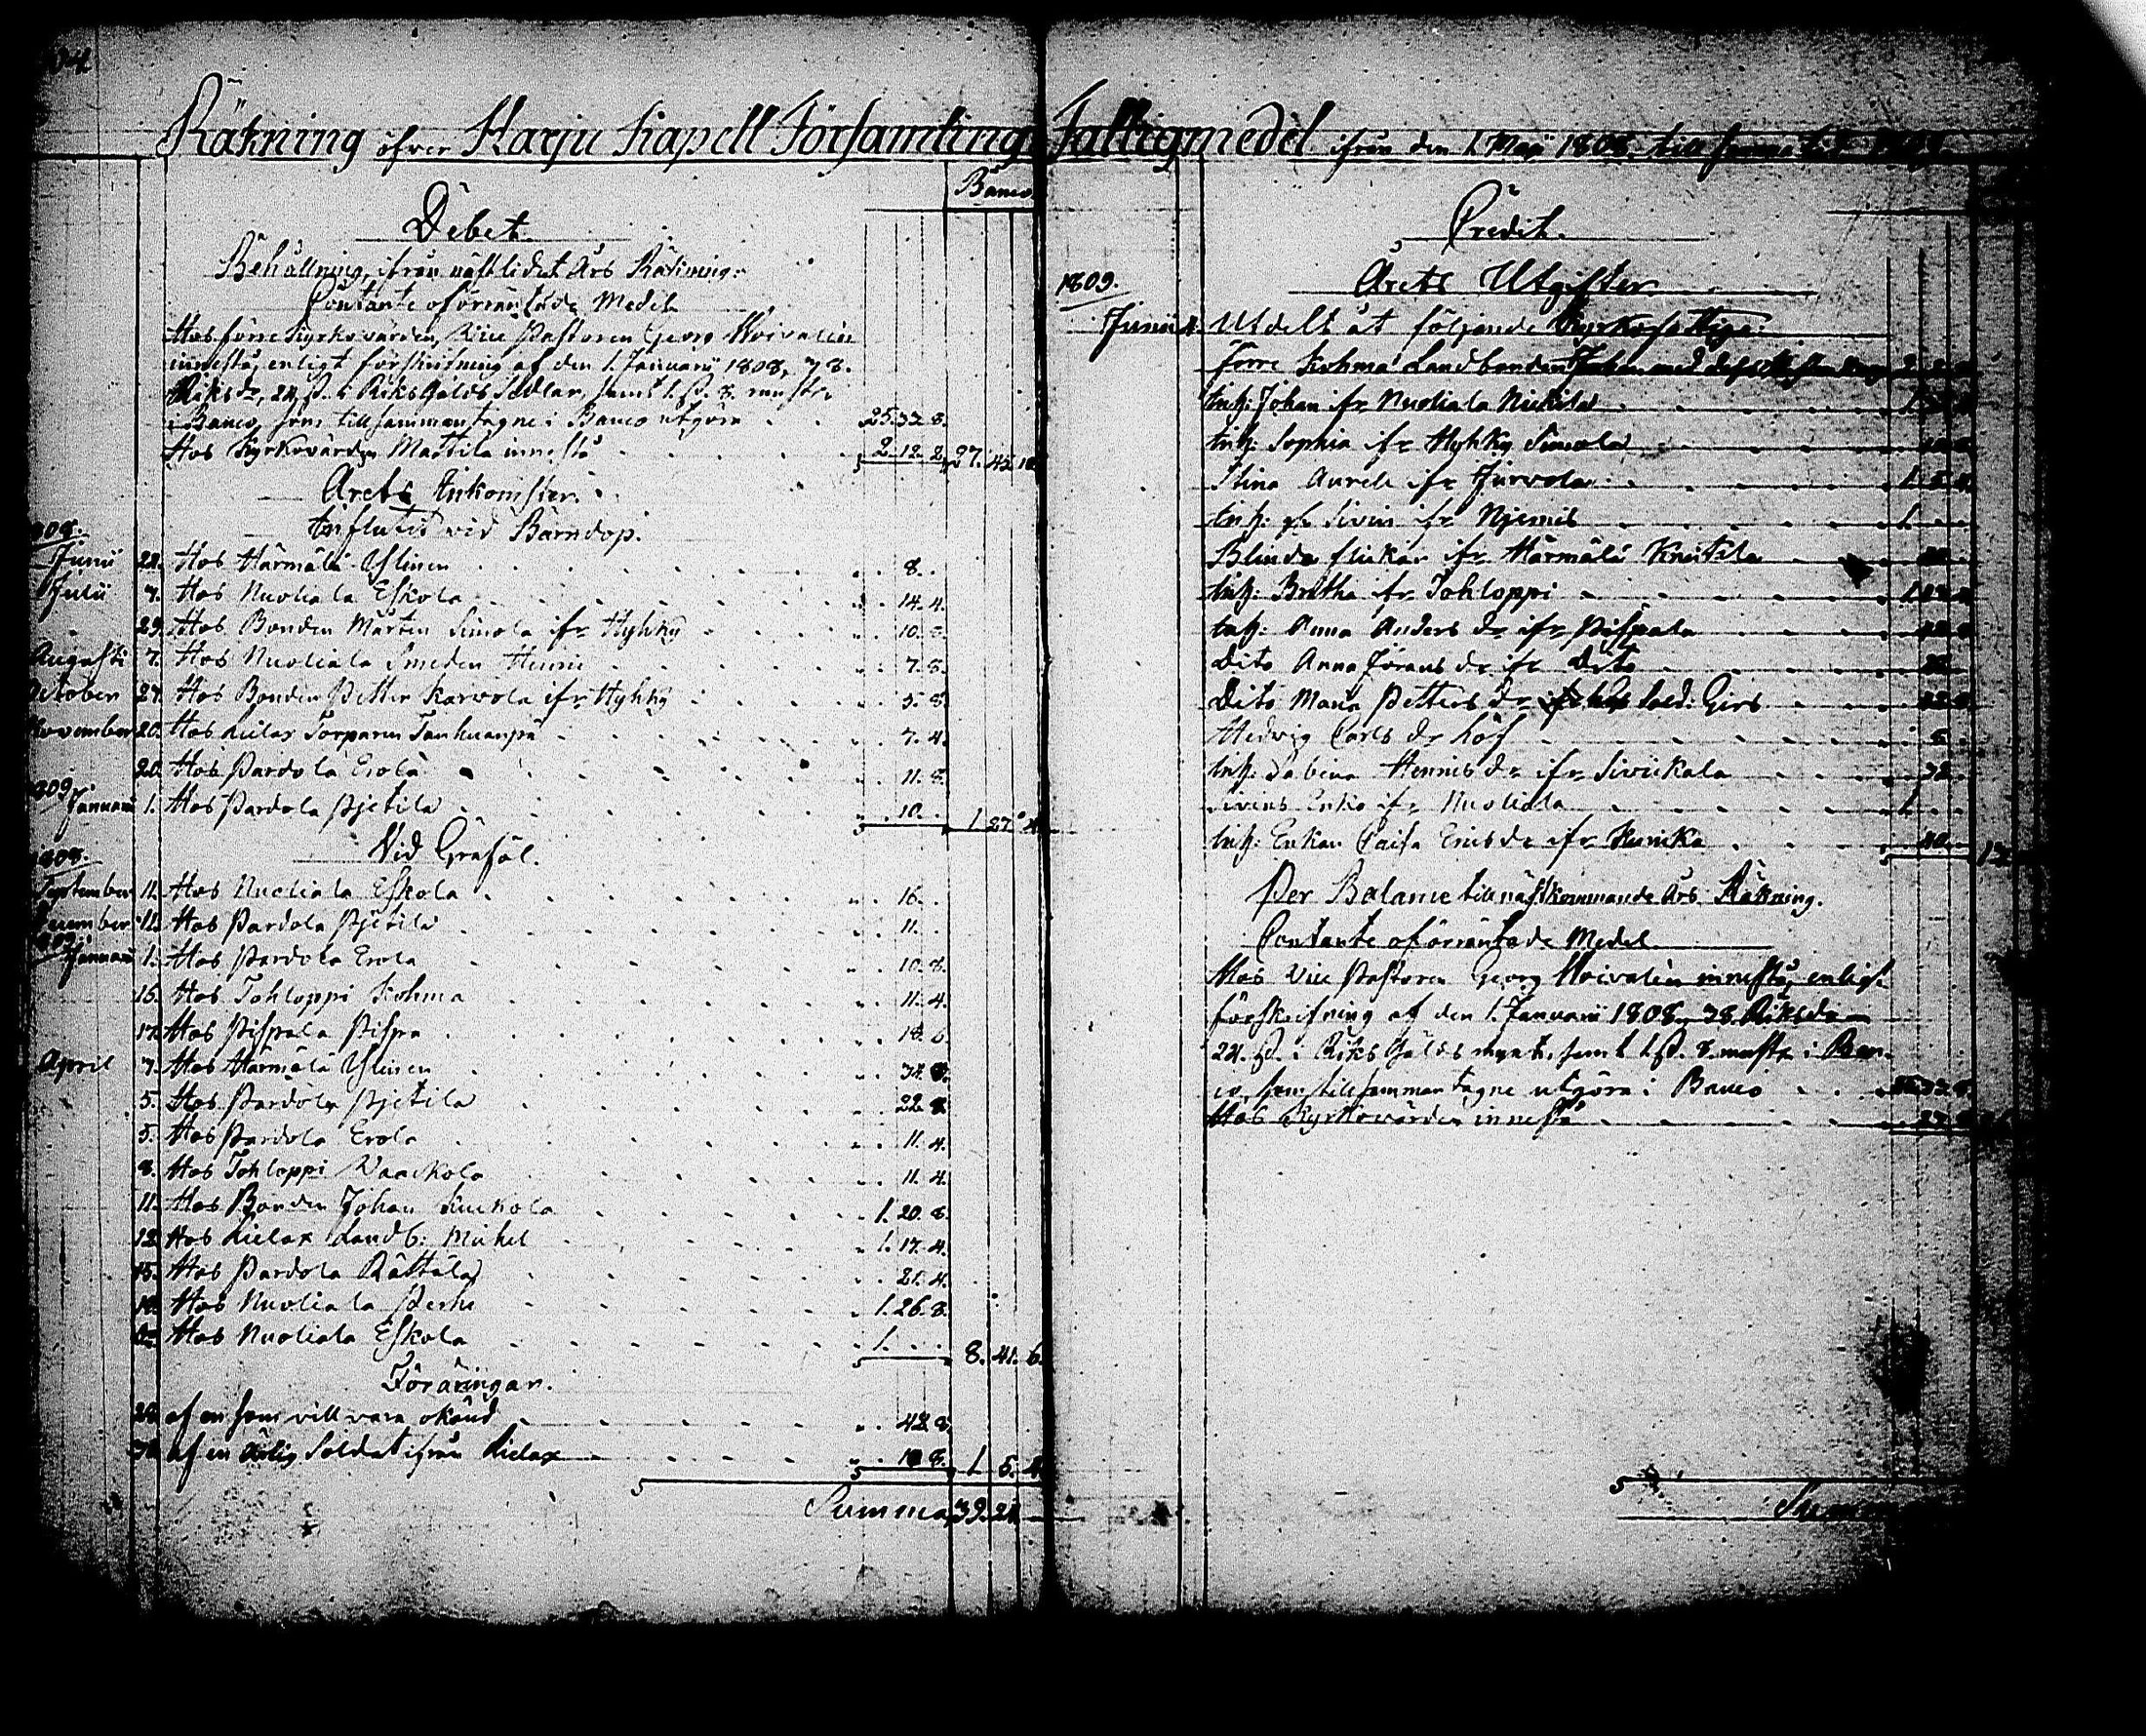 Räkning öfver Harju Kapell Församlings Fattigmedel ifrån den 1. Maji 1808. till samma tid 1809.
Banco
Debet.
Behållning, ifrån nästlidet års Räkning:
Contante oförräntade Medel
Hos förre Kyrkovärden, Vice Pastoren Georg Woivalin
innestå, enligt förskrifning af den 1. Januarii 1808, 38.
Riksdr, 24 ß. i Riks Gälds Sedlar, samt 1. ß. 8. runstr
i Banco, som tillsammantagne i Banco utgöra 25. 32. 8.
Hos Kyrkovärden Mattila innestå 2. 12. 2. 27. 45. 10.
Årets Inkomster.
Influtit vid Barndop.
1808.
Junii 22. Hos Härmälä Ylinen 8.
Julii 7. Hos Nuoliala Eskola 14. 4.
29. Hos Bonden Mårten Simola ifr Hyhky 10. 8.
Augusti 7. Hos Nuoliala Smeden Henric 7. 8.
October 27. Hos Bonden Petter Karvola ifr Hyhky 5. 8.
November 20. Hos Lielax Torparen Tanhuanpä 7. 4.
20. Hos Pardola Erola 11. 8.
1809
Januarii 1. Hos Pardola Pjetilä 10. 1. 27. 4.
Vid Grafäl.
1808.
September 11. Hos Nuoliala Eskola 16.
December 11. Hos Pardola Pjetilä 11.
1809.
Januarii 1. Hos Pardola Erola 10. 8.
16. Hos Tohloppi Kohma 11. 4.
17. Hos Pispala Pispa 18. 6.
April 7. Hos Härmälä Ylinen 32. 8.
5. Hos Pardola Pjetilä 22. 8.
5. Hos Pardola Erola 11. 4.
8. Hos Tohloppi Waackola 11. 4.
11. Hos Bonden Johan Kuckola 1. 20. 8.
12. Hos Lielax Landb: Michel 1. 17. 4.
15. Hos Pardola Rättälä 21. 4.
16. Hos Nuoliala Perhe 1. 26. 8.
Hos Nuoliala Eskola 1. 8. 41. 6.
Föräringar.
28. af en som vill vara okänd 42. 8.
30. af en ärlig Soldat ifrån Lielax 10. 8. 1. 5. 4.
Summa 39. 24.
Credit.
Årets Utgifter.
1809.
Junii 4. Utdelt åt följande Kyrkofattige:
Förre Kohma Landbonden
Inh: Johan ifr Nuoliala Nickilä
Inh: Sophia ifr Hyhky Simola
Stina Aureli ifr Jurvola
Inh: ifr Njemis
Blinda flickan ifr Härmälä Knutila
Inh: Britha ifr Tohloppi
Inh: Anna Anders dr ifr Pispala
Dito Anna Jörans dr ifr Dito
Dito Maria Petters dr ifr hos Sold: Girs
Hedwig Carls dr
Inh: Sabina Hennis dr ifr Siviickala 32.
Sivius Enka ifr Nuoliala 1.
Inh: Enkan Caisa Erics dr ifr Kurika 40.
Per Balance till nästkommande års Räkning.
Contante oförräntade Medel.
Hos Vice Pastoren Georg Woivalin innestå, enligt
förskrifning af den 1. Januarii 1808, 38. Riksdr
24. ß. i Riks Gälds mynt, samt 1. ß. 8. runstr i Ban-
co, som tillsammantagne utgöra i Banco 25. 32. 8.
Hos Kyrkovärden innestå